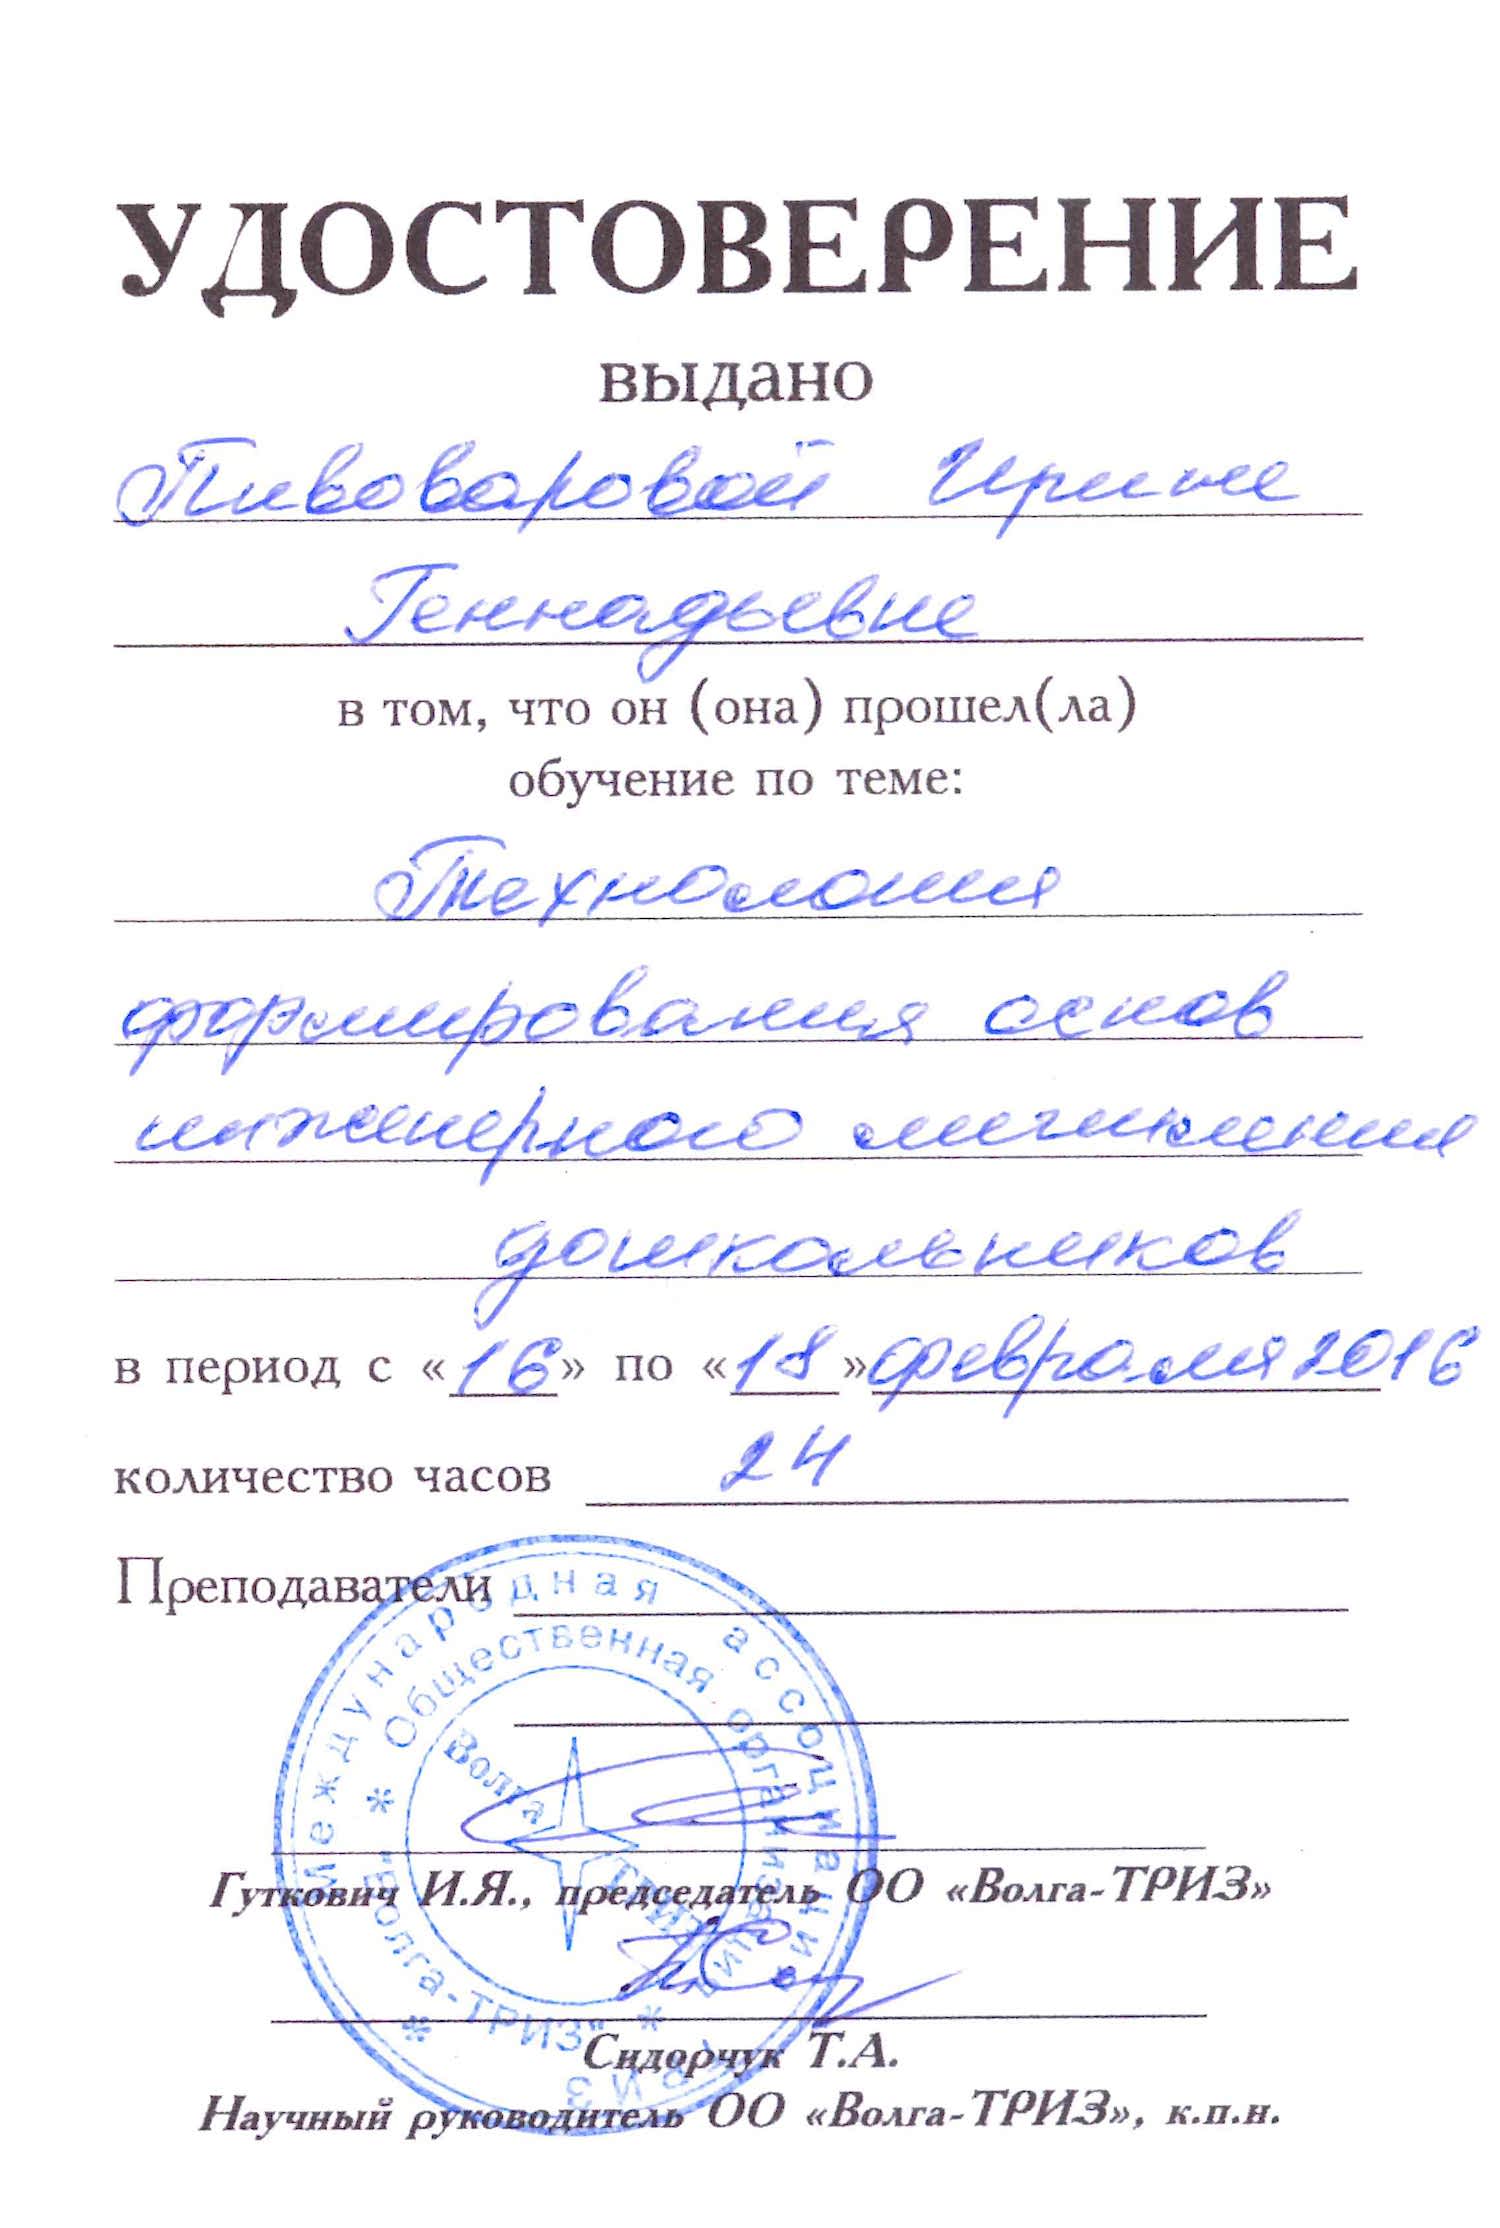 УДОСТОВЕРЕНИЕ
выдано
Пивоваровой Ирине
Геннадьевне
в том, что он (она) прошел(ла)
обучение по теме:
Технология
формирования основ
инженерного мышления
дошкольников
в период с «16» по «18» февраля 2016
количество часов 24
Преподаватели
Международная ассоциация ТРИЗ
Общественная организация
"Волга-ТРИЗ"
Волга ТРИЗ
Гуткович И.Я., председатель ОО «Волга-ТРИЗ»
Сидорчук Т.А.
Научный руководитель ОО «Волга-ТРИЗ», к.п.н.